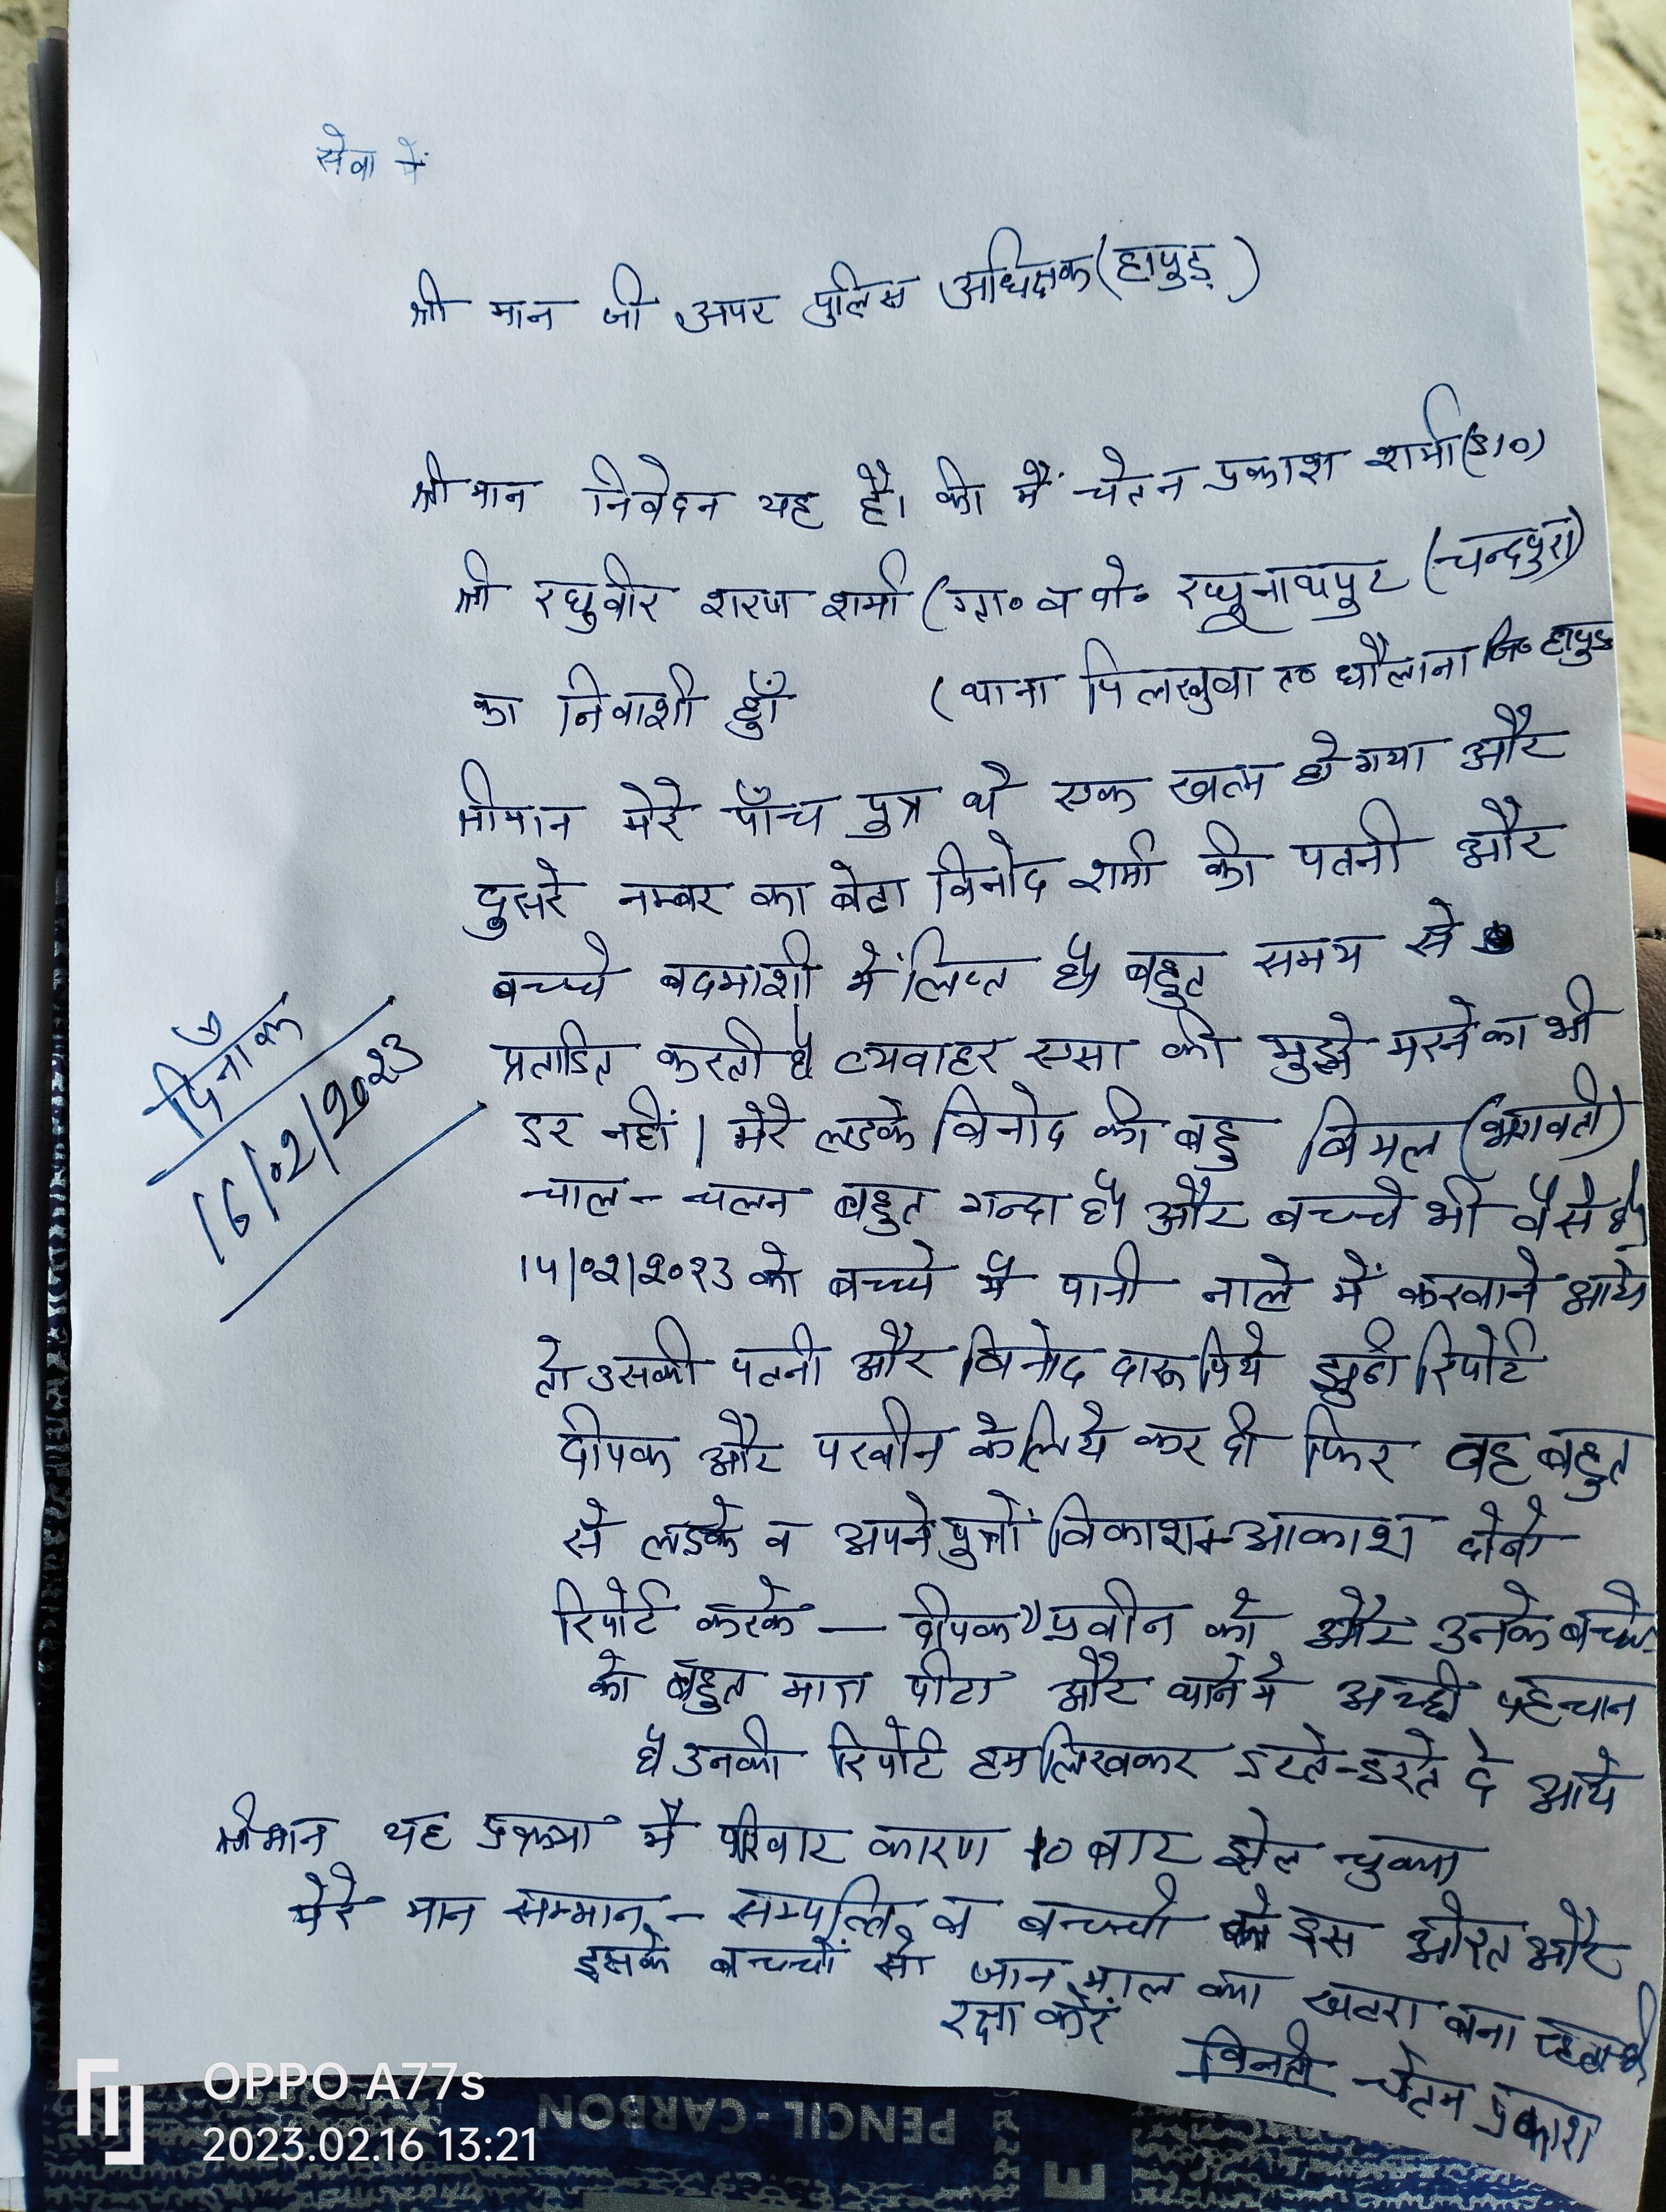 सेवा में
श्री मान जी अपर पुलिस अधिक्षक (हापुड़)
श्री मान निवेदन यह है। की मैं चेतन प्रकाश शर्मा (S/0)
श्री रघुवीर शरण शर्मा (ग्रा० व पो० रघुनाथपुर (चन्दपुरा)
का निवाशी हुँ (थाना पिलखुवा त० धौलाना जि० हापुड़
श्रीमान मेरे पाँच पुत्र थे एक खत्म हो गया और
दुसरे नम्बर का बेटा विनोद शर्मा की पतनी और
बच्चे बदमाशी में लिप्त है बहुत समय से
प्रताडित करती है व्यवाहर एसा की मुझे मरने का भी
डर नहीं। मेरे लडके विनोद की बहु बिमल (भगवती)
चाल-चलन बहुत गन्दा है और बच्चे भी वैसे है
दिनाँक
16/02/2023
15/02/2023 को बच्चे मै पानी नाले में करवाने आये
तो उसकी पतनी और विनोद दारू पिये झुठी रिपोर्ट
दीपक और परवीन के लिये कर दी फिर वह बहुत
से लडके व अपने पुत्रों विकाश+आकाश दोनो
रिपोर्ट करके — दीपक प्रवीन को और उनके बच्चो
को बहुत मारा पीटा और थाने मे अच्छी पहचान
है उनकी रिपोर्ट हम लिखकर डरते-डरते दे आये
श्रीमान यह प्रक्रया मै परिवार कारण 10 बार झेल चुका
मेरे मान सम्मान, - सम्पत्ति, व बच्चो को इस औरत और
इसके बच्चों से जान माल का खतरा बना रहता है
रक्षा करें
विनती चेतन प्रकाश
OPPO A77s
2023.02.16 13:21
PENCIL-CARBON